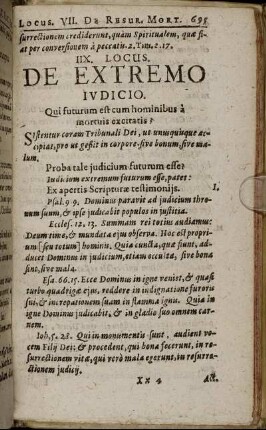 Locus. VII. De Resur. Mort. 695
surrectionem crediderunt, quàm Spiritualem, quæ fi-
at per conversionem à peccatis. 2. Tim. 2. 17.
IIX. LOCUS.
DE EXTREMO
IVDICIO.
Qui futurum est cum hominibus à
mortuis excitatis?
Sistentur coram Tribunali Dei, ut unusquisque ac-
cipiat, pro ut gessit in corpore sive bonum, sive ma-
lum.
Proba tale judicium futurum esse?
Iudicium extremum futurum esse, patet:
Ex apertis Scripturæ testimonijs. I.
Psal. 9. 9. Dominus paravit ad judicium thro-
num suum, & ipse judicabit populos in justitia.
Eccles. 12. 13. Summam rei totius audiamus:
Deum time, & mandata ejus observa. Hoc est propri-
um [seu totum] hominis. Quia cuncta, quæ fiunt, ad-
ducet Dominus in judicium, etiam occulta, sive bona
sint, sive mala.
Esa. 66. 15. Ecce Dominus in igne veniet, & quasi
turbo quadrigæ ejus, reddere in indignatione furorem
sui, & increpationem suam in flamma ignu. Quia in
igne Dominus judicabit, & in gladio suo omnem car-
nem.
Ioh. 5. 28. Qui in monumentis sunt, audient vo-
cem Filij Dei: & procedent, qui bona fecerunt, in re-
surrectionem vitæ, qui verò mala egerunt, in resurre-
ctionem judicij.
Xx 4 Act.